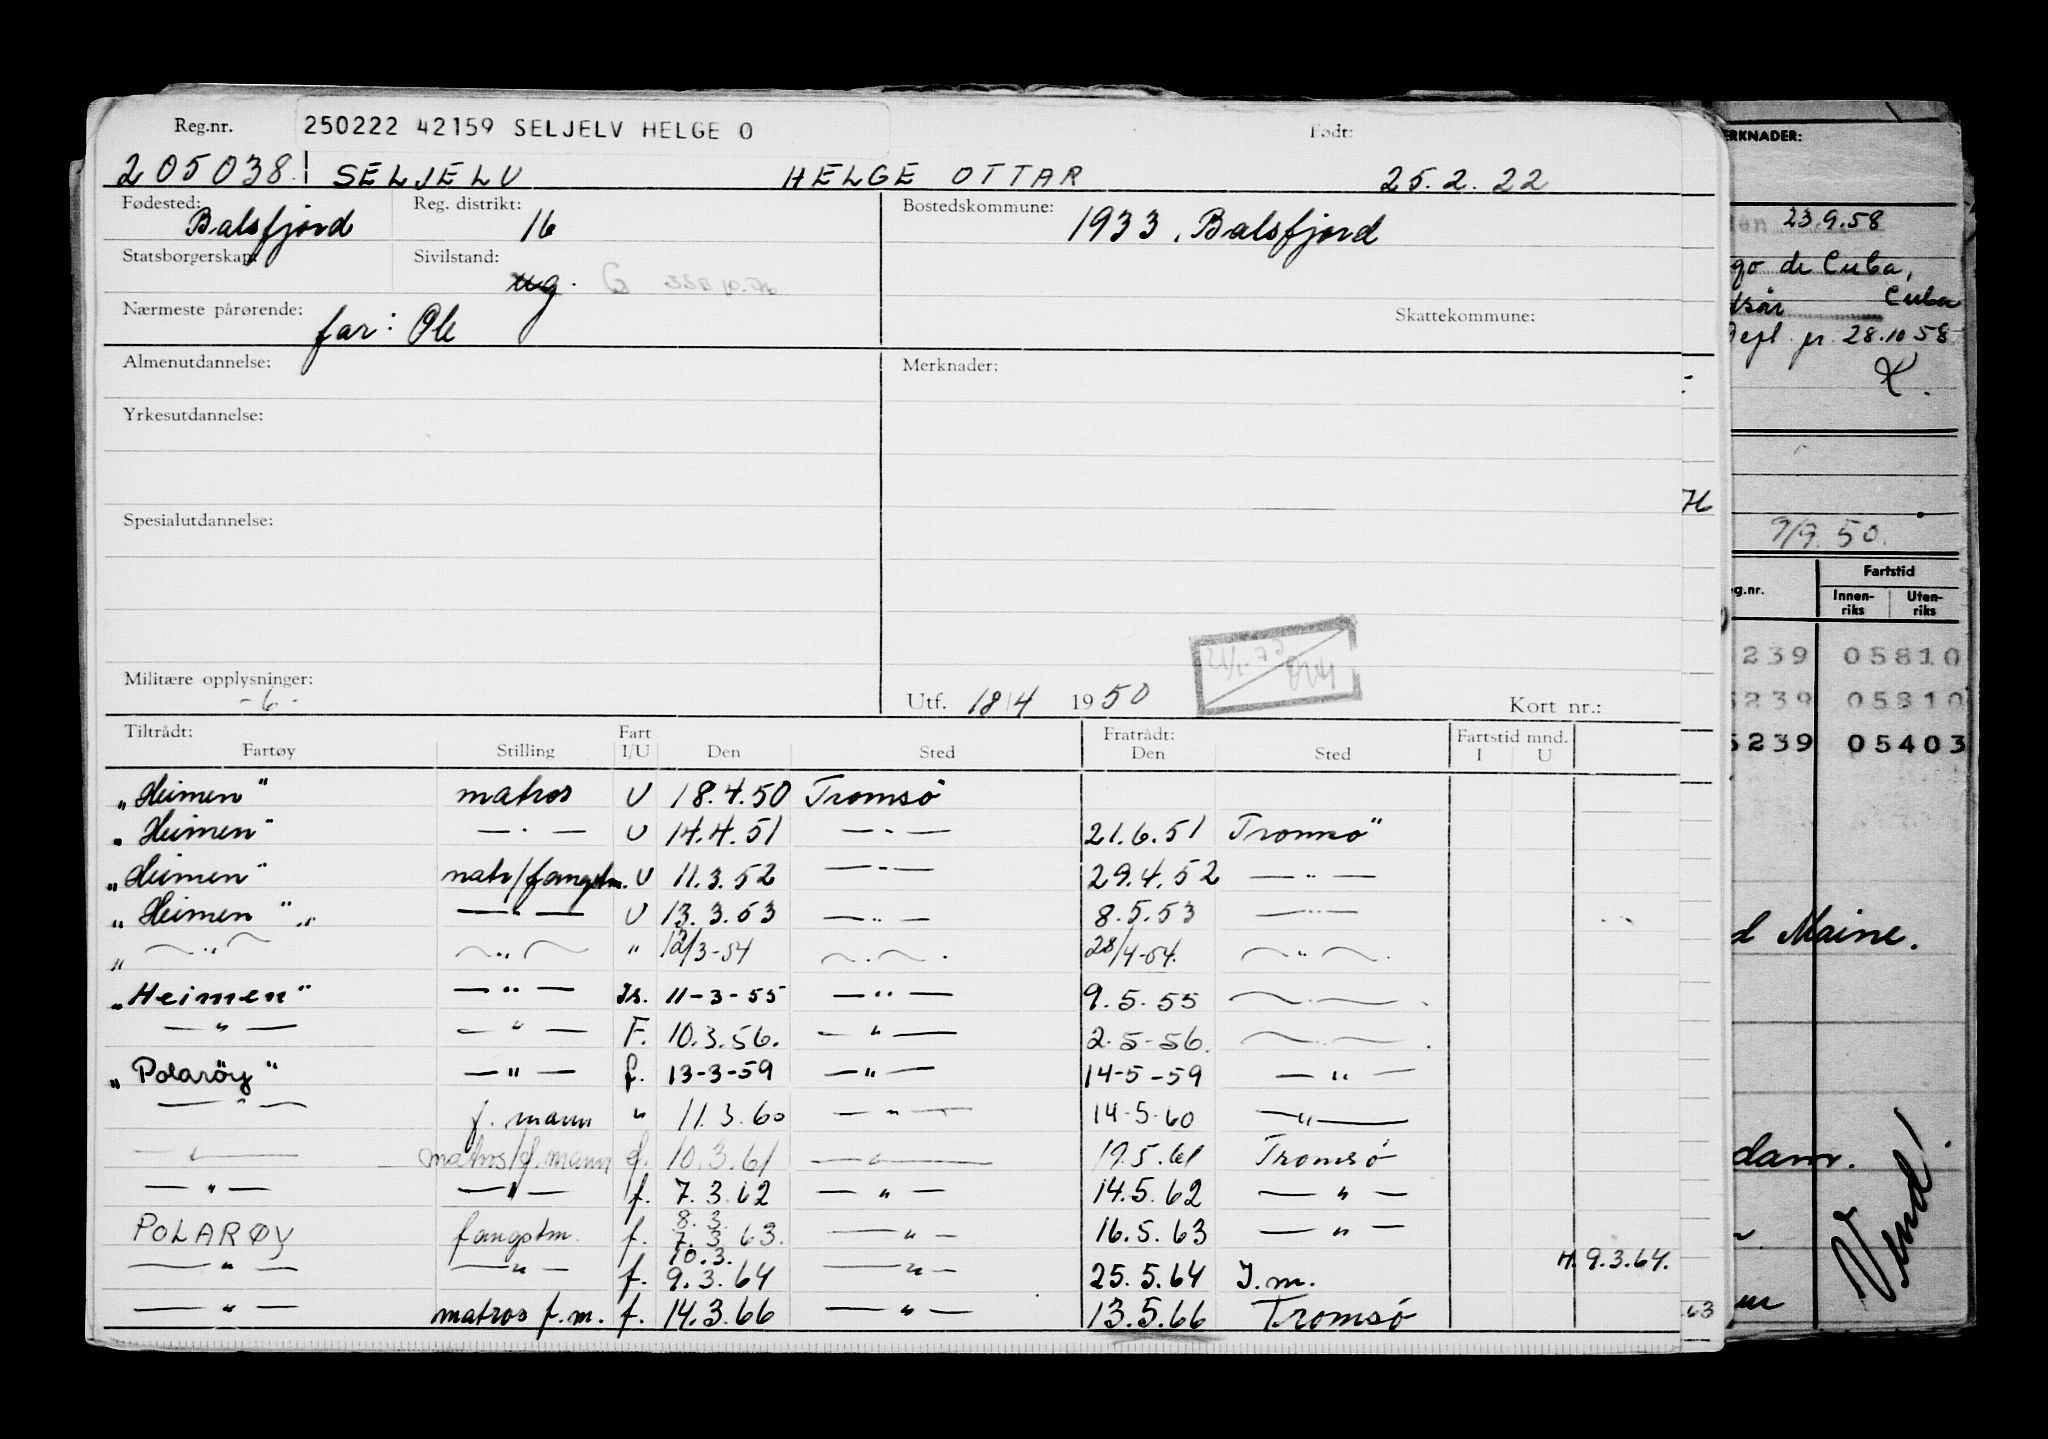 Reg.nr. 250222 42159 SELJELV HELGE O Født:
205038 SELJELV HELGE OTTAR 25.2.22
Fødested: Balsfjord Reg. distrikt: 16 Bostedskommune: 1933. Balsfjord
Statsborgerskap: Sivilstand: ug. G
Nærmeste pårørende: far: Ole Skattekommune:
Almenutdannelse: Merknader:
Yrkesutdannelse:
Spesialutdannelse:
Militære opplysninger: -6- Utf. 18/4 1950 Kort nr.:
Tiltrådt: Fart Fratrådt: Fartstid mnd.
Fartøy Stilling I/U Den Sted Den Sted I U
"Heimen" matros U 18.4.50 Tromsø
"Heimen" — " — U 14.4.51 — " — 21.6.51 Tromsø
"Heimen" matr/fangstm. U 11.3.52 — " — 29.4.52 — " —
"Heimen" — " — U 13.3.53 — " — 8.5.53 — " —
— " — — " — " 12/3-54 — " — 28/4-54. — " —
"Heimen" — " — Is. 11-3-55 — " — 9.5.55 — " —
— " — — " — F. 10.3.56. — " — 2.5-56. — " —
"Polarøy" — " — f. 13-3-59 — " — 14-5-59 — " —
— " — f. mann " 11.3.60 — " — 14-5-60 — " —
— " — matros/f.mann f. 10.3.61 — " — 19.5.61 Tromsø
— " — — " — f. 7.3.62 — " — 14.5.62 — " —
POLARØY fangstm. f. 8.3. 7.3.63. — " — 16.5.63 — " —
— " — — " — f. 10.3. 9.3.64 — " — 25.5.64 I.m. H.9.3.64.
— " — matros f.m. f. 14.3.66 — " — 13.5.66 Tromsø
76
63
ERKNADER:
23.9.58
go de Cuba,
Cuba
28.10.58
9/9.50.
g.nr. Fartstid
Innen-riks Uten-riks
239 05810
5239 05810
5239 05403
d Maine.
dam.
Vend!